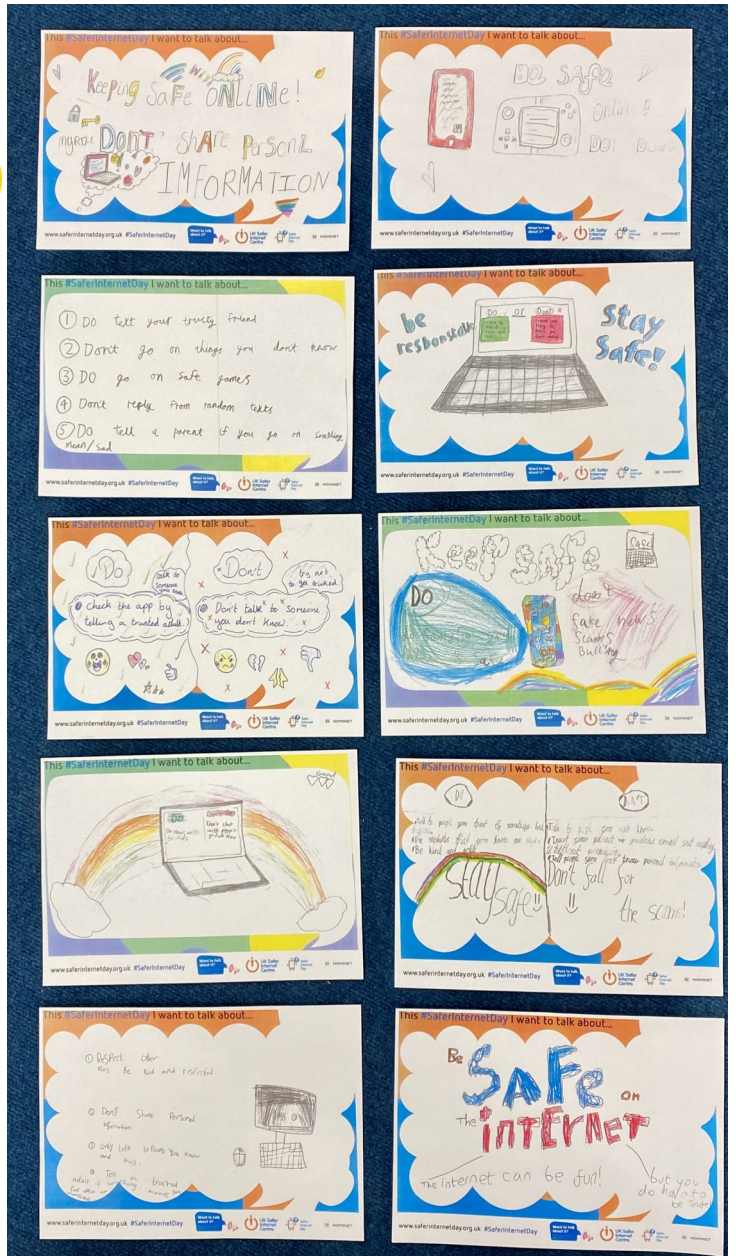 This #SaferInternetDay I want to talk about...
Keeping SaFe ONLiNe!
DON'T SHARE PeRSONL
IMFORMATION
www.saferinternetday.org.uk #SaferInternetDay
Want to talk about it?
UK Safer Internet Centre
Safer Internet Day
NOMINET
This #SaferInternetDay I want to talk about...
Be SAFe
Online!
Do:
www.saferinternetday.org.uk #SaferInternetDay
Want to talk about it?
UK Safer Internet Centre
Safer Internet Day
NOMINET
This #SaferInternetDay I want to talk about...
1 Do text your trusty friend
2 Don't go on things you don't know
3 DO go on safe games
4 Don't reply from random texts
5 Do tell a parent if you go on something
mean/sad
www.saferinternetday.org.uk #SaferInternetDay
Want to talk about it?
UK Safer Internet Centre
Safer Internet Day
NOMINET
This #SaferInternetDay I want to talk about...
be
Do or Don't x
Stay
Safe!
www.saferinternetday.org.uk #SaferInternetDay
Want to talk about it?
UK Safer Internet Centre
Safer Internet Day
NOMINET
This #SaferInternetDay I want to talk about...
Do
talk to
someone
you know
check the app by
telling a trusted adult.
Don't
try not
to get tricked
Don't talk to someone
you don't know.
www.saferinternetday.org.uk #SaferInternetDay
Want to talk about it?
UK Safer Internet Centre
Safer Internet Day
NOMINET
This #SaferInternetDay I want to talk about...
KeeP SAFE
Safe
DO
don't
fake news
Scams
www.saferinternetday.org.uk #SaferInternetDay
Want to talk about it?
UK Safer Internet Centre
Safer Internet Day
NOMINET
This #SaferInternetDay I want to talk about...
DO
Don't chat
with people
www.saferinternetday.org.uk #SaferInternetDay
Want to talk about it?
UK Safer Internet Centre
Safer Internet Day
NOMINET
This #SaferInternetDay I want to talk about...
Do
Talk to people you trust if
Be kind and
Stay
Safe
DON'T
Talk to people you
Tell people you know personal
Don't fall for
the scams!
www.saferinternetday.org.uk #SaferInternetDay
Want to talk about it?
UK Safer Internet Centre
Safer Internet Day
NOMINET
This #SaferInternetDay I want to talk about...
1 Respect other
Be kind and
Don't Share Personal
information
only talk to People you know
and trust.
Tell a trusted
adult if
www.saferinternetday.org.uk #SaferInternetDay
Want to talk about it?
UK Safer Internet Centre
Safer Internet Day
NOMINET
This #SaferInternetDay I want to talk about...
Be
SAFe on
The inTErNeT
The internet can be fun!
but you
do have to
be safe!
www.saferinternetday.org.uk #SaferInternetDay
Want to talk about it?
UK Safer Internet Centre
Safer Internet Day
NOMINET